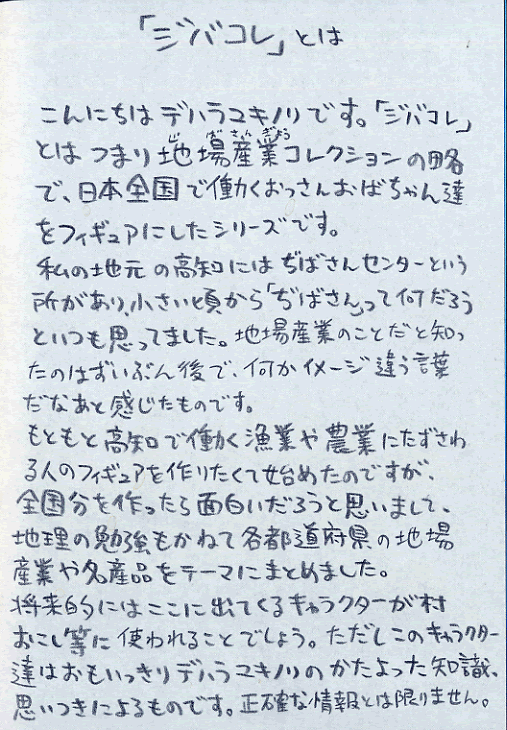 「ジバコレ」とは
こんにちはデハラユキノリです。「ジバコレ」
とはつまり地場産業コレクションの略
で、日本全国で働くおっさんおばちゃん達
をフィギュアにしたシリーズです。
私の地元の高知にはぢばさんセンターという
所があり、小さい頃から「ぢばさん」って何だろう
といつも思ってました。地場産業のことだと知っ
たのはずいぶん後で、何かイメージ違う言葉
だなあと感じたものです。
もともと高知で働く漁業や農業にたずさわ
る人のフィギュアを作りたくて始めたのですが、
全国分を作ったら面白いだろうと思いまして、
地理の勉強もかねて各都道府県の地場
産業や名産品をテーマにまとめました。
将来的にはここに出てくるキャラクターが村
おこし等に使われることでしょう。ただしこのキャラクター
達はおもいっきりデハラユキノリのかたよった知識、
思いつきによるものです。正確な情報とは限りません。